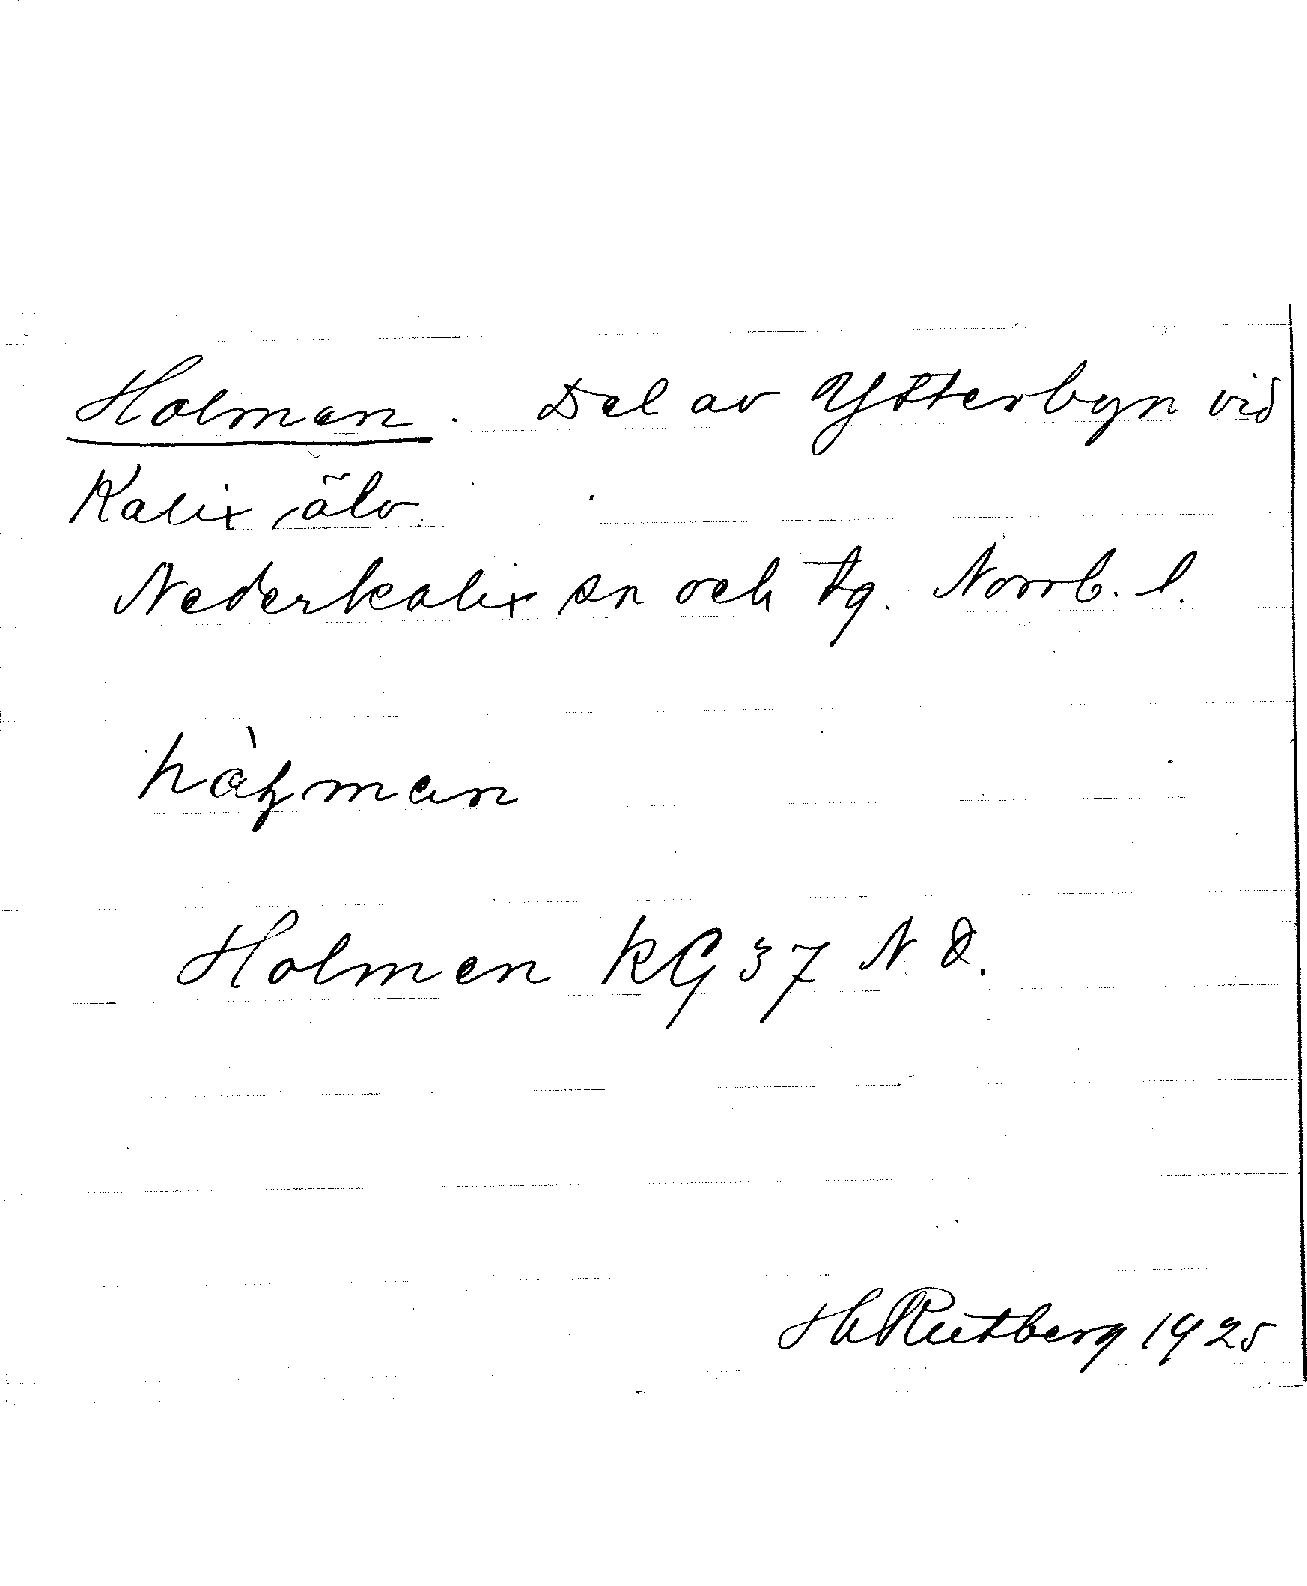 Holmen. Del av Ytterbyn vid
Kalix älv.
Nederkalix sn och tg. Norrb. l.
Holmen KG 37 N. O.
H Rutberg 1925